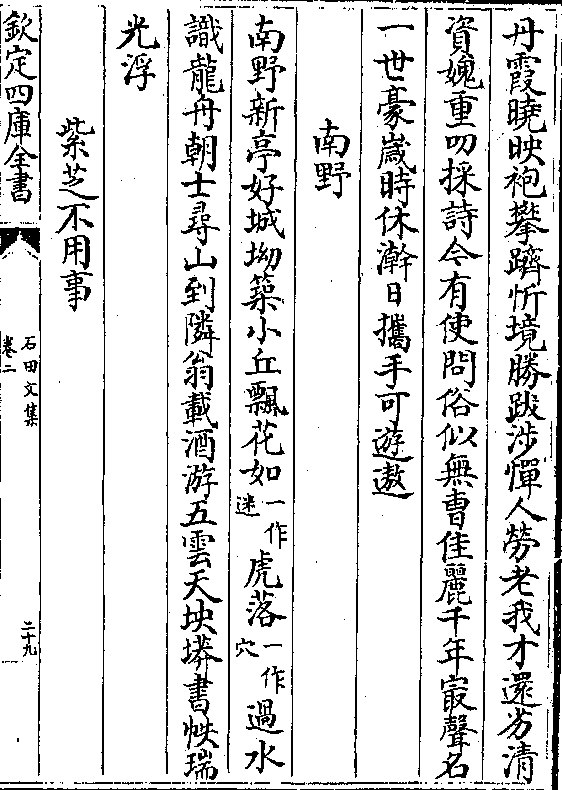 丹霞曉映袍攀躋忻境勝跋涉憚人勞老我才還劣清
資媿重叨採詩今有使問俗似無曹佳麗千年㝡聲名
一世豪歲時休澣日攜手可遊遨
南野
南野新亭好城坳築小丘飄花如一作迷虎落一作穴過水
識龍舟朝士尋山到隣翁載酒游五雲天坱圠書帙瑞
光浮
紫芝不用事
欽定四庫全書
石田文集
卷二
二十九